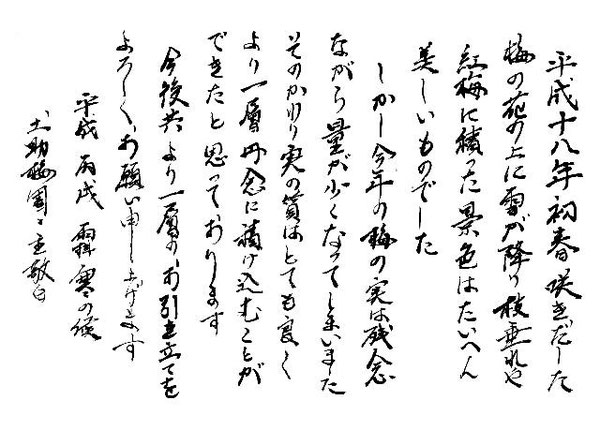 平成十八年初春咲きだした
梅の花の上に雪が降り枝垂れや
紅梅に積った景色はたいへん
美しいものでした
しかし今年の梅の実は残念
ながら量が少くなってしまいました
そのかわり実の質はとても良く
より一層丹念に漬け込むことが
できたと思っております
今後共より一層のお引き立てを
よろしくお願い申し上げます
平成丙戌 霜零の候
土助梅園々主敬白